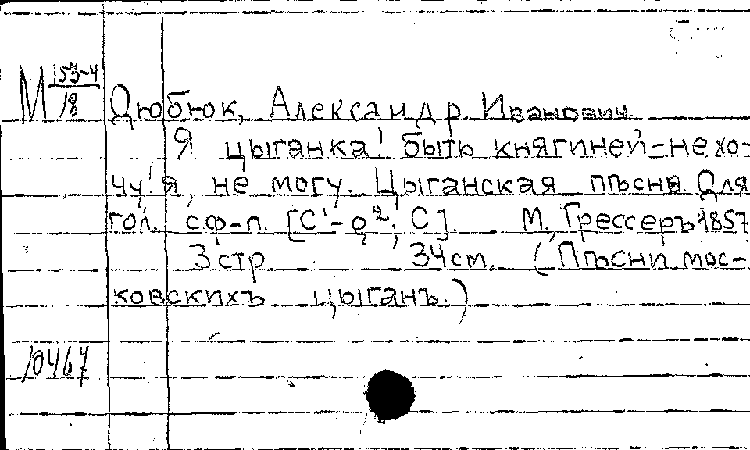 М 153-4
18
Дюбюк, Александр Иванович
Я цыганка! быть княгиней-не хо-
чу! я, не могу. Цыганская пѣсня. Для
гол. с ф-п. [C¹-g²; C] М. Грессеръ 1857
3 стр 34 cm. (Пѣсни мос-
ковскихъ цыганъ.)
10467